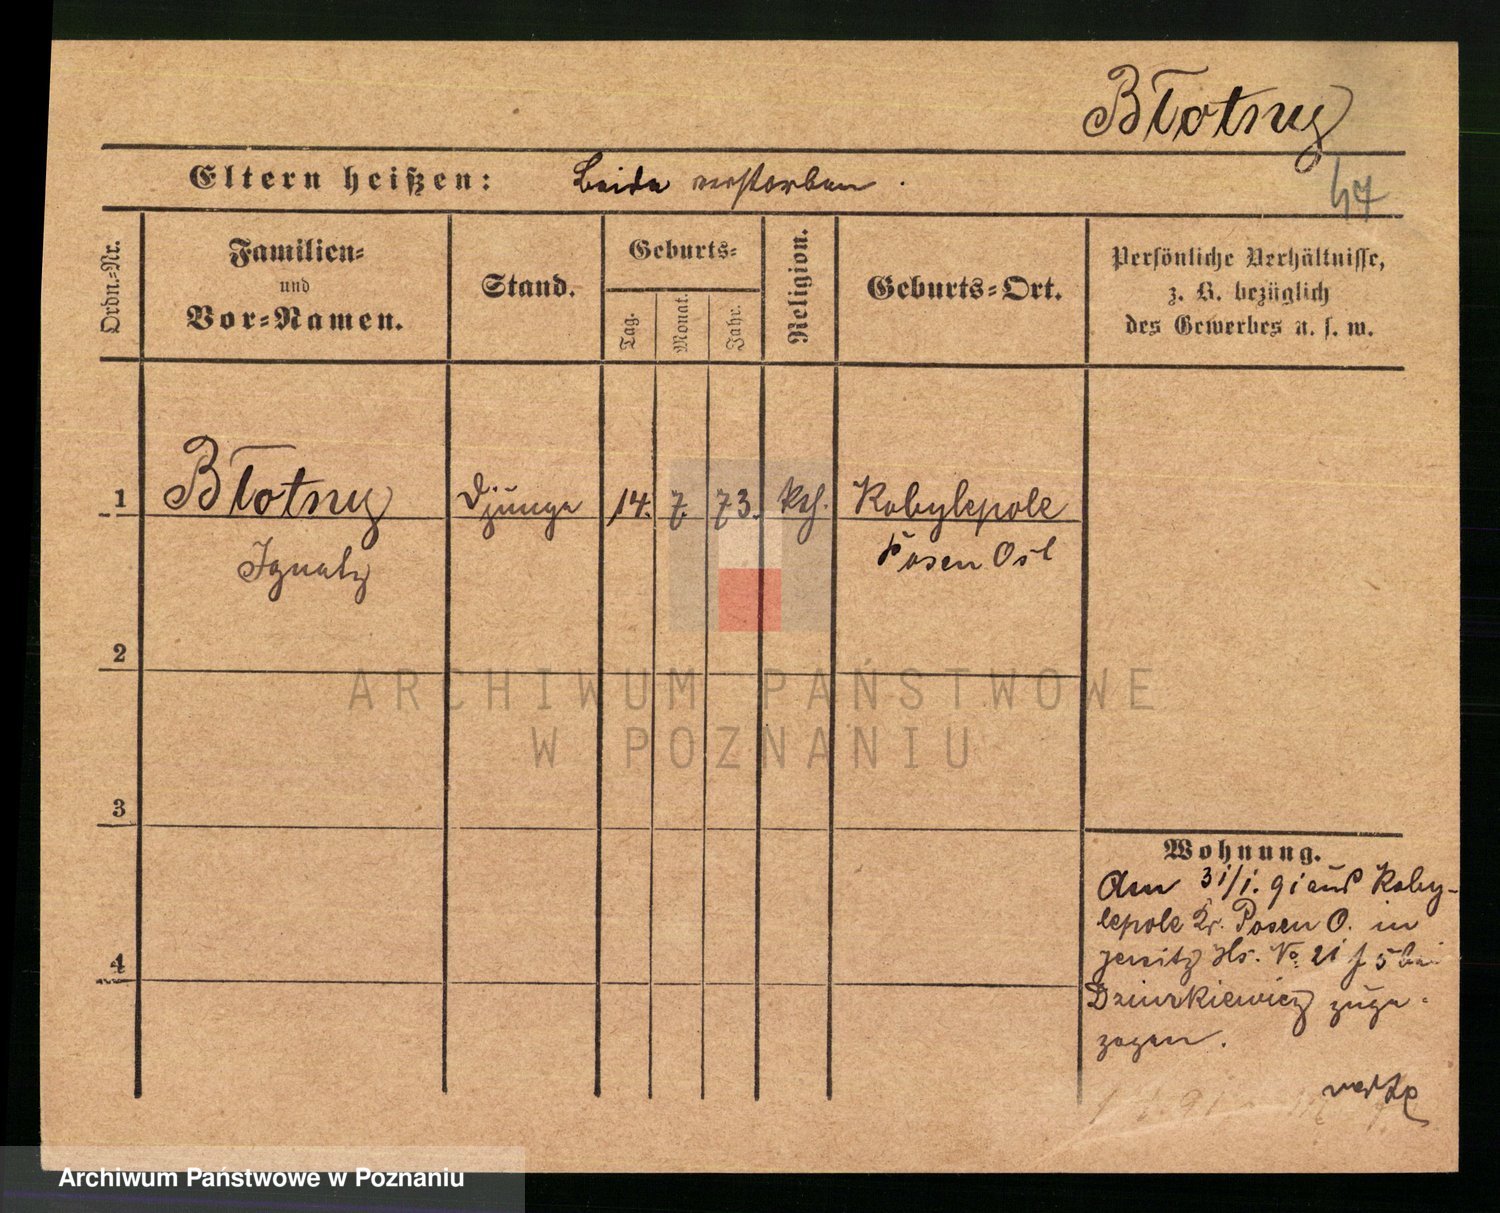 Błotny
Eltern heißen: beide verstorben.
47
Ordn.-Nr.
Familien-
und
Vor-Namen.
Stand.
Geburts-
Tag.
Monat.
Jahr.
Religion.
Geburts-Ort.
Persönliche Verhältnisse,
z. B. bezüglich
des Gewerbes u. s. w.
1 Błotny Djunge 14. 7. 73. kth. Kobylepole
Ignatz Posen Ost
2
3
4
Wohnung.
Am 31/1. 91 aus Koby-
lepole Kr. Posen O. in
Jersitz Hs. No 21 f 5 bei
Dziurkiewicz zuge-
zogen.
verte
ARCHIWUM PAŃSTWOWE
W POZNANIU
Archiwum Państwowe w Poznaniu